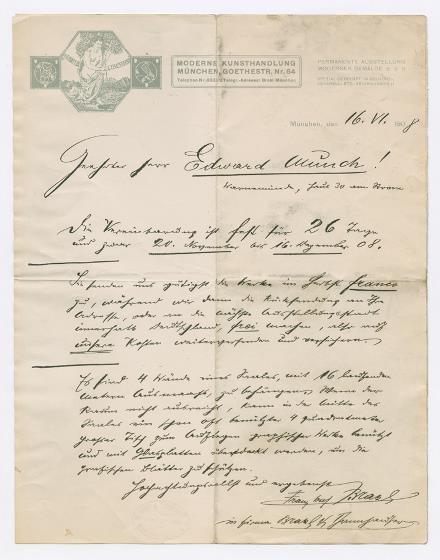 MODERNE KUNSTHANDLUNG
MÜNCHEN, GOETHESTR. Nr. 64
PERMANENTE AUSSTELLUNG
MODERNER GEMÄLDE
München, den 16. VI. 1908
Geehrter Herr Edward Munch!
Warnemünde, am Strom
Die Vereinbarung ist fest für 26 Tage
und zwar 20. November bis 16. Dezember 08.
Sie senden uns gütigst die Werke im Herbst franco
zu, während wir dann die Rücksendung an Ihre
Adresse, oder an die nächste Ausstellungsstadt
innerhalb Deutschland, frei machen, also auf
unsere Kosten weitersenden und versichern.
Es sind 4 Wände eines Saales, mit 16 laufenden
Metern zu behängen. Wenn der
Raum nicht ausreicht, kann in der Mitte des
Saales ein schon oft benützter 4 quadratmeter
großer Tisch zum Auflegen graphischer Werke benützt
und mit Glasplatten überdeckt werden, um die
grafischen Blätter zu schützen.
Hochachtungsvollst und ergebenst
Franz Josef Brakl
in Firma Brakl & Thannhauser